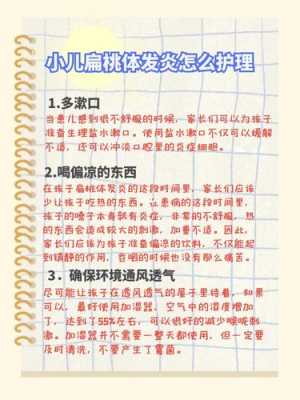 小儿扁桃体发炎怎么护理
1.多漱口
当患儿感到很不舒服的时候，家长们可以为孩子
准备生理盐水漱口。使用盐水漱口不仅可以缓解
不适，还可以冲淡口腔里的炎症细胞。
2.喝偏凉的东西
在孩子扁桃体发炎的这段时间里，家长们应该
少让孩子吃热的东西。在患病的这段时间里，
孩子的嗓子本身就有炎症，非常的不舒服，热
的东西会造成较大的刺激，加重不适。因此，
家长们应该为孩子准备偏凉的饮料，不仅能起
到镇静的作用，吞咽的时候也没有那么痛苦。
3．确保环境通风透气
尽可能让孩子在透风透气的屋子里待着，如果
可以，最好使用加湿器，空气中的湿度增加
了，达到了55%左右，可以很好的减少喉咙刺
激。加湿器并不需要一整天都使用，但一定要
及时清洗，不要产生了霉菌。